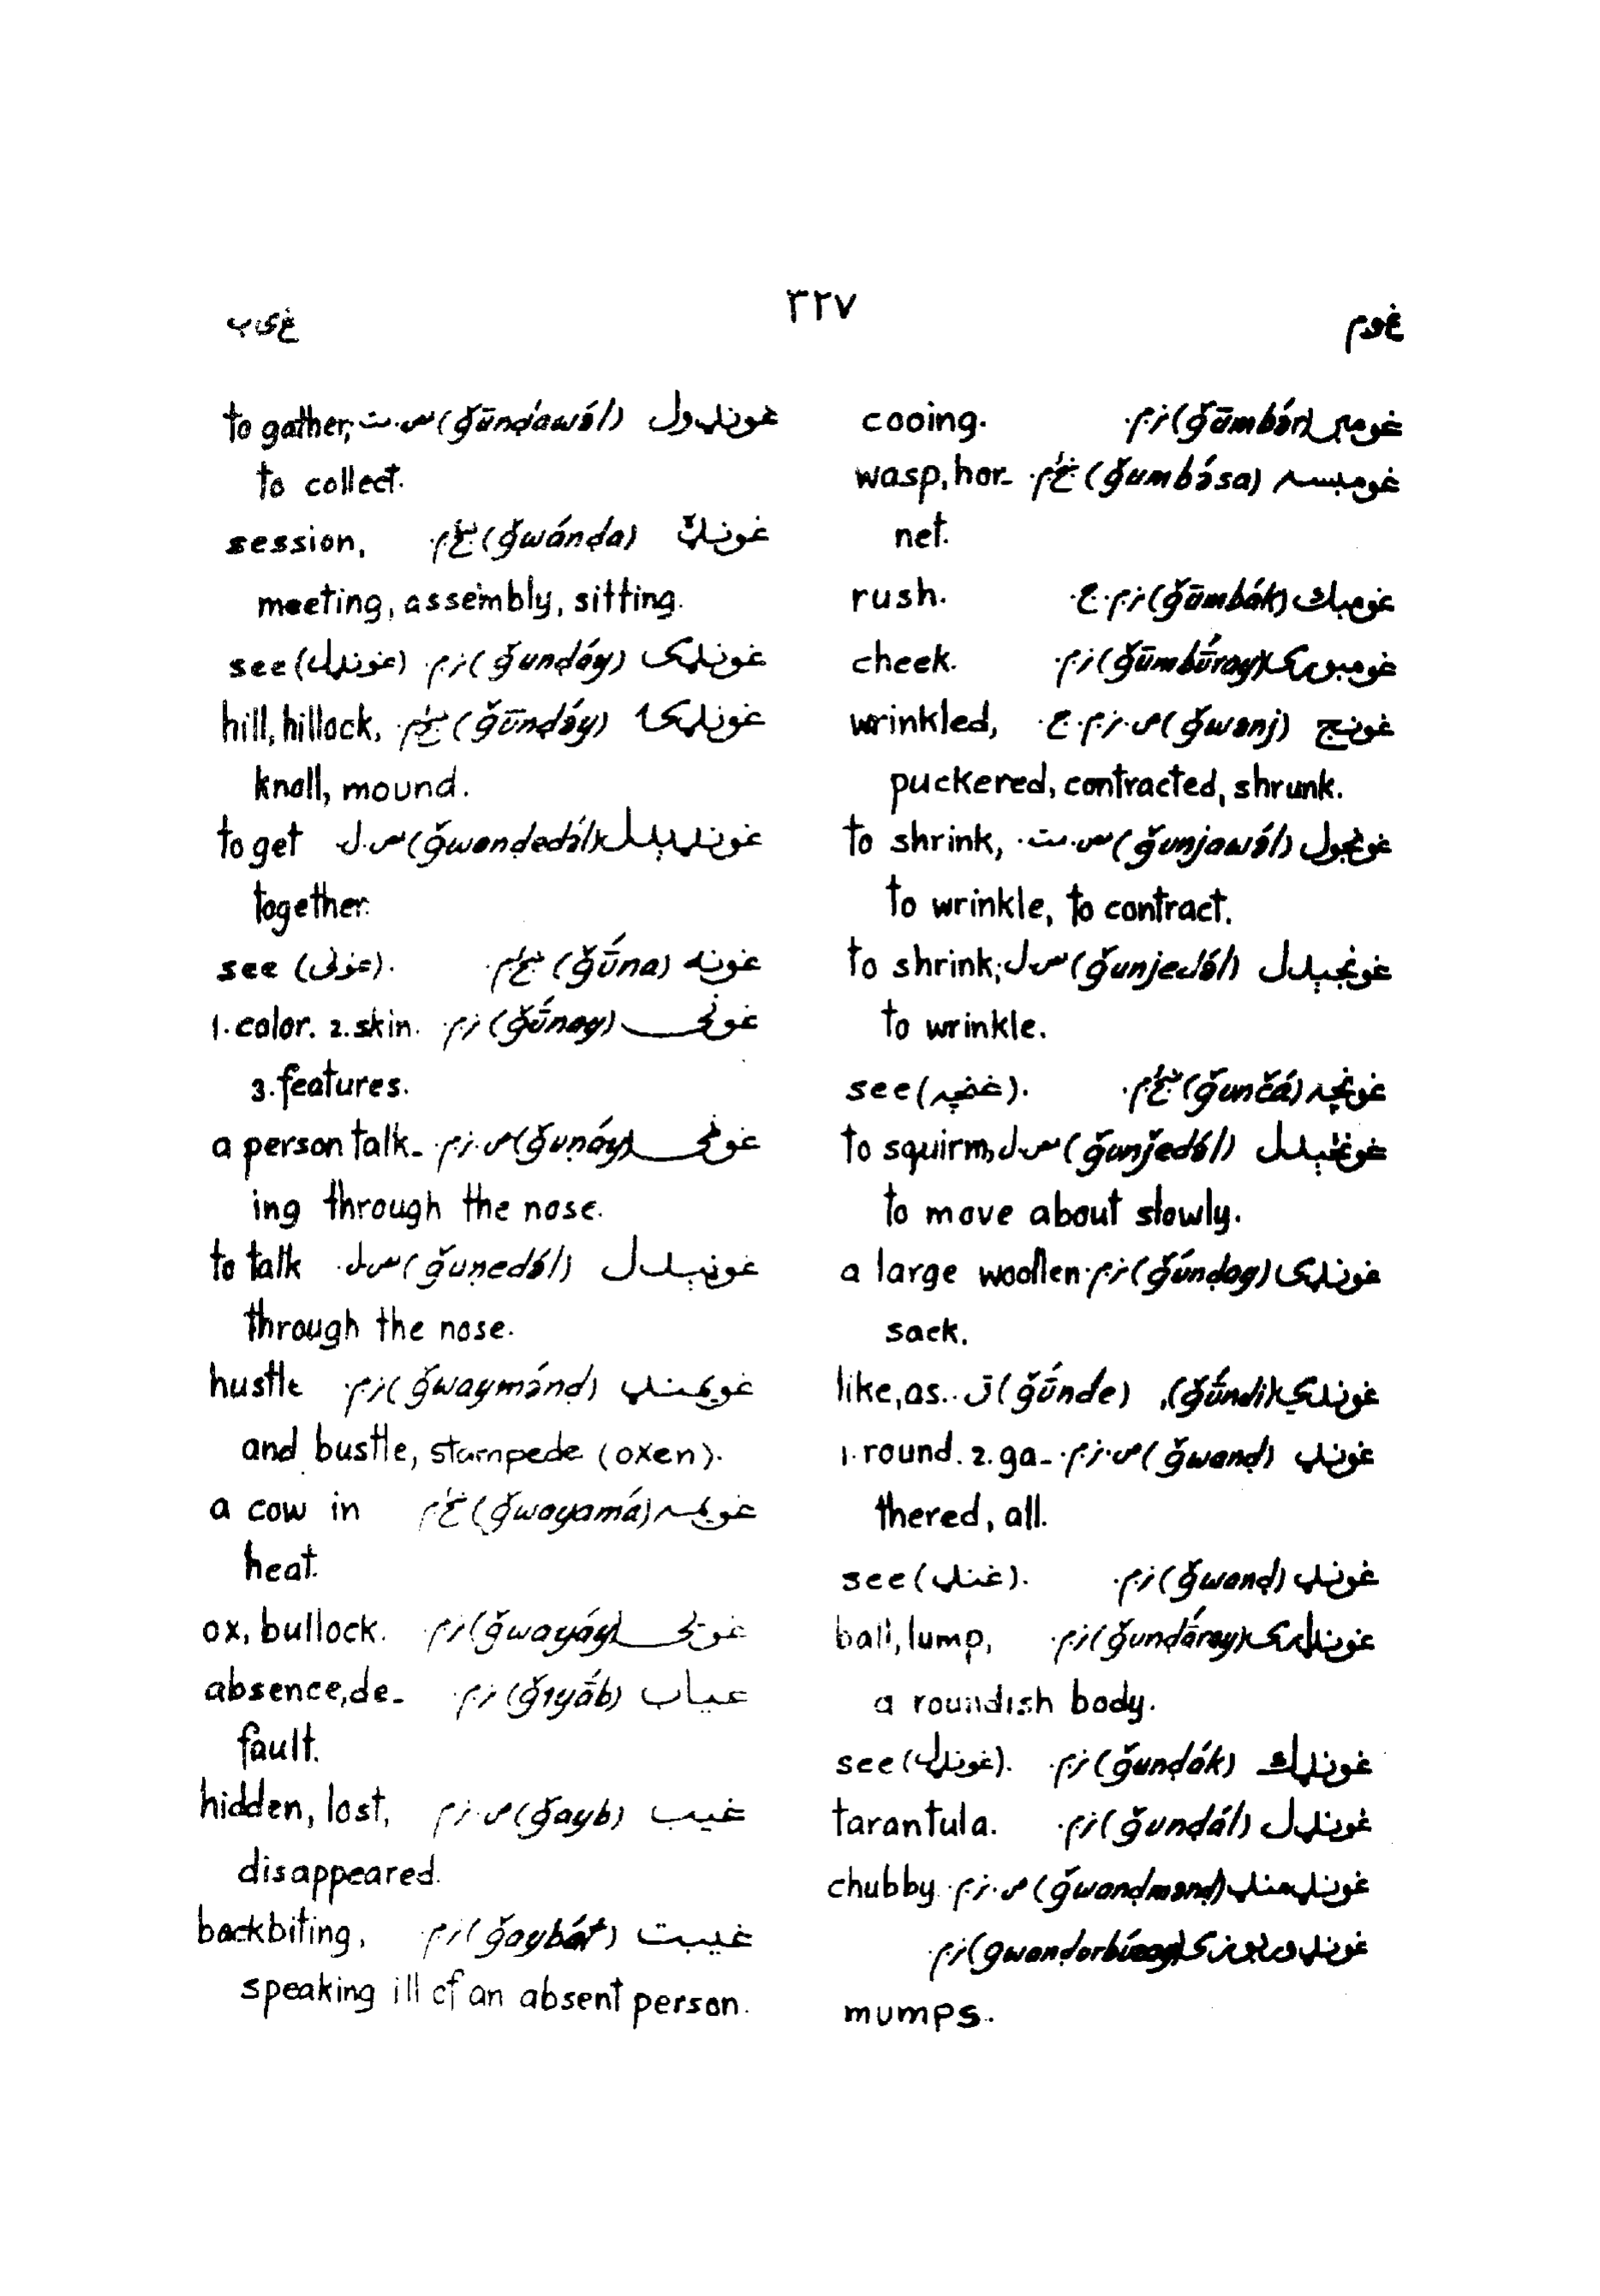 غوم
٣٢٧
غیب
غومبر (ğūmbə́r) ز.م. cooing.
غومبسه (ğumbə́sa) ښځ.م. wasp, hor-
net.
غومباك (ğūmbák) ز.م.ج. rush.
غومبوری (ğūmbū́ray) ز.م. cheek.
غونج (ğwənj) ص.ز.م.ج. wrinkled,
puckered, contracted, shrunk.
غونجول (ğunjawə́l) ص.ت. to shrink,
to wrinkle, to contract.
غونجېدل (ğunjedə́l) ص.ل to shrink;
to wrinkle.
غونچه (ğunčá) ښځ.م. see (غنچه).
غونځېدل (ğunǰedə́l) ص.ل to squirm,
to move about slowly.
غونډی (ğúnḍay) ز.م. a large woollen
sack.
غوندي (ğū́ndi), (ğū́nde) ق. like, as.
غونډ (ğwənḍ) ص.ز.م. 1. round. 2. ga-
thered, all.
غونډ (ğwənḍ) ز.م. see (غنډ).
غونډاری (ğunḍā́ray) ز.م. ball, lump,
a roundish body.
غونډك (ğunḍák) ز.م. see (غونډل).
غونډل (ğunḍál) ز.م. tarantula.
غونډمنډ (ğwəndmənḍ) ص.ز.م. chubby
غونډوربوزی (gwənḍərbúzay) ز.م.
mumps.
غونډول (ğūnḍawə́l) ص.ت. to gather,
to collect.
غونډه (ğwánḍa) ښځ.م. session,
meeting, assembly, sitting.
غونډی (ğunḍáy) ز.م. see (غونډل)
غونډۍ (ğūnḍə́y) ښځ.م. hill, hillock,
knoll, mound.
غونډېدل (ğwənḍedə́l) ص.ل. to get
together.
غونه (ğū́na) ښځ.م. see (غونی).
غونی (ğū́nay) ز.م. 1. color. 2. skin.
3. features.
غوڼی (ğuṇáy) ص.ز.م. a person talk-
ing through the nose.
غوڼېدل (ğuṇedə́l) ص.ل. to talk
through the nose.
غویمنډ (ğwaymə́nḍ) ز.م. hustle
and bustle, stampede (oxen).
غویمه (ğwayamá) ښځ.م a cow in
heat.
غویی (ğwayáy) ز.م. ox, bullock.
غیاب (ğiyā́b) ز.م. absence, de-
fault.
غیب (ğayb) ص.ز.م. hidden, lost,
disappeared.
غیبت (ğaybát) ز.م. backbiting,
speaking ill of an absent person.